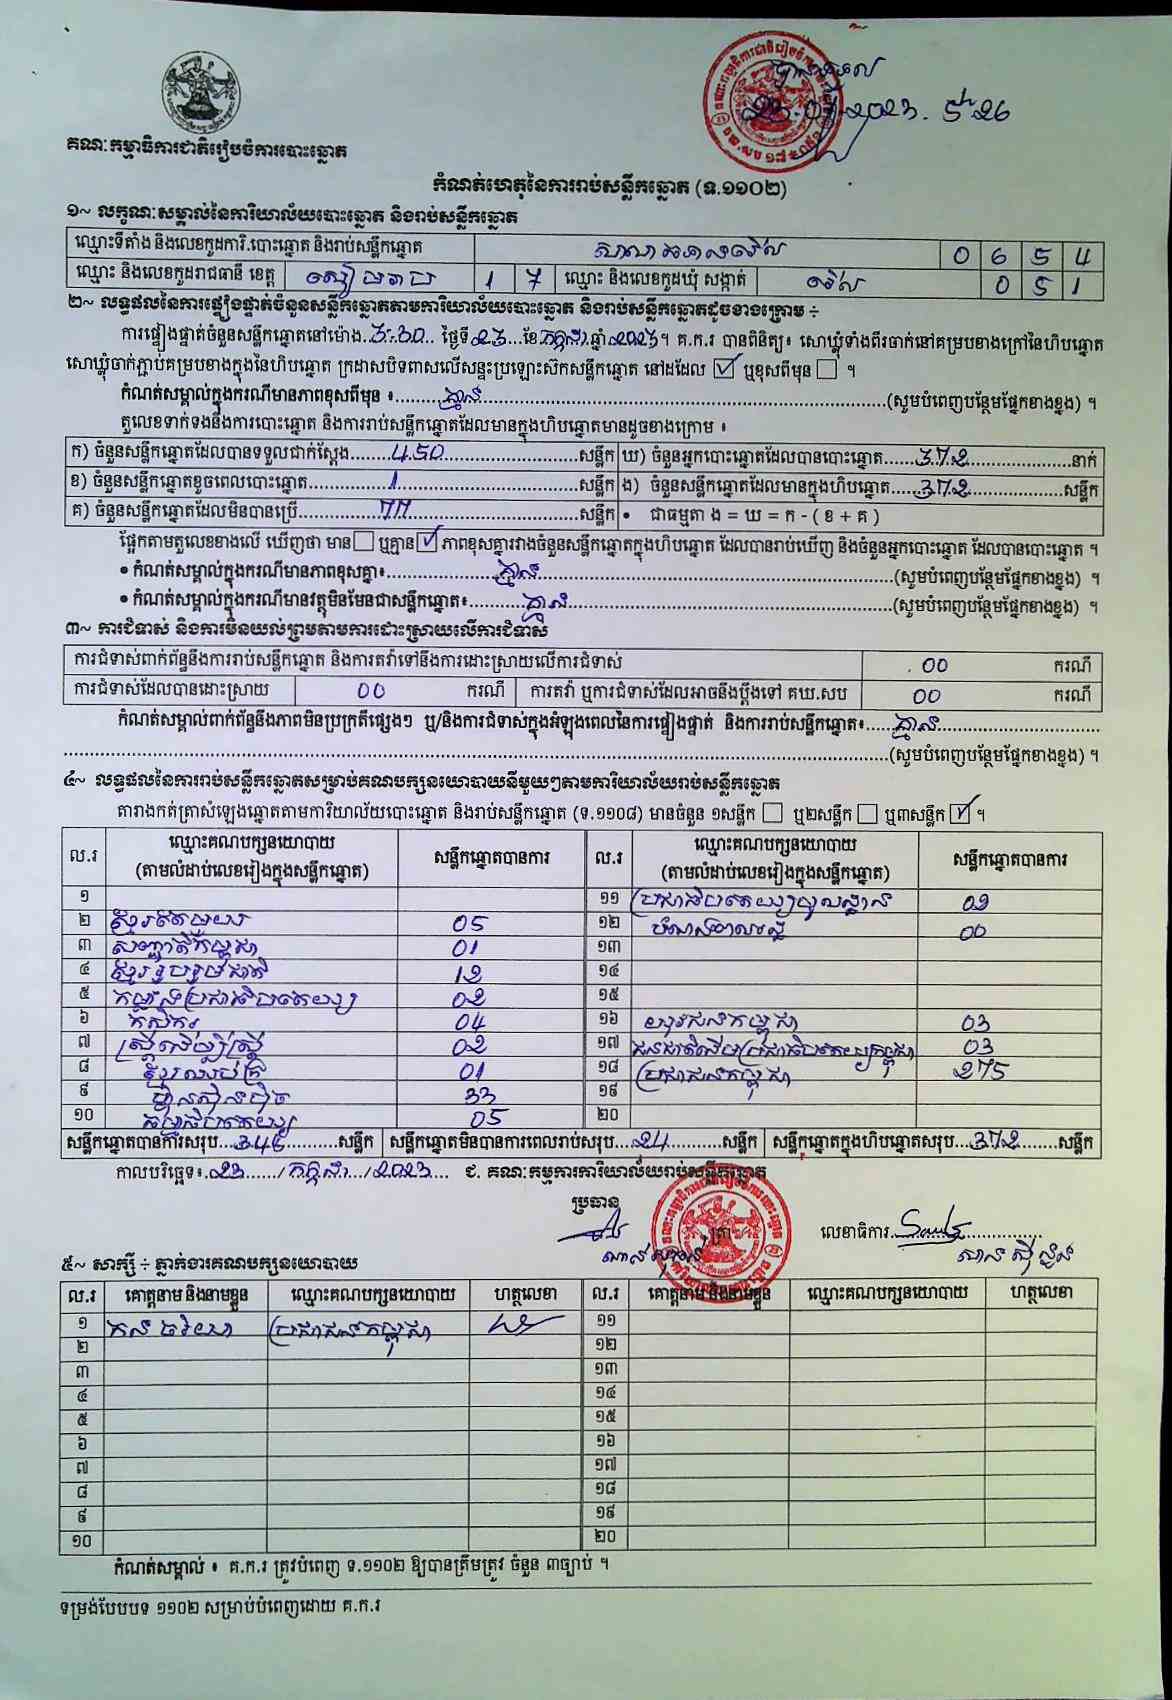 បានទទួល
23.07.2023. ម៉ 5:26
គណៈកម្មាធិការជាតិរៀបចំការបោះឆ្នោត
កំណត់ហេតុនៃការរាប់សន្លឹកឆ្នោត (ទ.១១០២)
១~ លក្ខណៈសម្គាល់នៃការិយាល័យបោះឆ្នោត និងរាប់សន្លឹកឆ្នោត
ឈ្មោះទីតាំង និងលេខកូដការិ.បោះឆ្នោត និងរាប់សន្លឹកឆ្នោត សាលា 0 6 5 4
ឈ្មោះ និងលេខកូដរាជធានី ខេត្ត សៀមរាប 1 7 ឈ្មោះ និងលេខកូដឃុំ សង្កាត់ 0 5 1
២~ លទ្ធផលនៃការផ្ទៀងផ្ទាត់ចំនួនសន្លឹកឆ្នោតតាមការិយាល័យបោះឆ្នោត និងរាប់សន្លឹកឆ្នោតដូចខាងក្រោម ÷
ការផ្ទៀងផ្ទាត់ចំនួនសន្លឹកឆ្នោតនៅម៉ោង..3:30.. ថ្ងៃទី.23...ខែ.កក្កដា.ឆ្នាំ.2023។ គ.ក.រ បានពិនិត្យ៖ សោឃ្លុំទាំងពីរចាក់នៅគម្របខាងក្រៅនៃហិបឆ្នោត
សោឃ្លុំចាក់ភ្ជាប់គម្របខាងក្នុងនៃហិបឆ្នោត ក្រដាសបិទពាសលើសន្ទះប្រឡោះស៊កសន្លឹកឆ្នោត នៅដដែល ☑ ឬខុសពីមុន ☐ ។
កំណត់សម្គាល់ក្នុងករណីមានភាពខុសពីមុន ៖..........គ្មាន..........(សូមបំពេញបន្ថែមផ្នែកខាងខ្នង) ។
តួលេខទាក់ទងនឹងការបោះឆ្នោត និងការរាប់សន្លឹកឆ្នោតដែលមានក្នុងហិបឆ្នោតមានដូចខាងក្រោម ៖
ក) ចំនួនសន្លឹកឆ្នោតដែលបានទទួលជាក់ស្តែង........450..........សន្លឹក ឃ) ចំនួនអ្នកបោះឆ្នោតដែលបានបោះឆ្នោត......372..........នាក់
ខ) ចំនួនសន្លឹកឆ្នោតខូចពេលបោះឆ្នោត..........1..........សន្លឹក ង) ចំនួនសន្លឹកឆ្នោតដែលមានក្នុងហិបឆ្នោត......372..........សន្លឹក
គ) ចំនួនសន្លឹកឆ្នោតដែលមិនបានប្រើ..........77..........សន្លឹក • ជាធម្មតា ង = ឃ = ក - ( ខ + គ )
ផ្អែកតាមតួលេខខាងលើ ឃើញថា មាន☐ ឬគ្មាន☑ ភាពខុសគ្នារវាងចំនួនសន្លឹកឆ្នោតក្នុងហិបឆ្នោត ដែលបានរាប់ឃើញ និងចំនួនអ្នកបោះឆ្នោត ដែលបានបោះឆ្នោត ។
• កំណត់សម្គាល់ក្នុងករណីមានភាពខុសគ្នា៖..........គ្មាន..........(សូមបំពេញបន្ថែមផ្នែកខាងខ្នង) ។
• កំណត់សម្គាល់ក្នុងករណីមានវត្ថុមិនមែនជាសន្លឹកឆ្នោត៖..........គ្មាន..........(សូមបំពេញបន្ថែមផ្នែកខាងខ្នង) ។
៣~ ការជំទាស់ និងការមិនយល់ព្រមតាមការដោះស្រាយលើការជំទាស់
ការជំទាស់ពាក់ព័ន្ធនឹងការរាប់សន្លឹកឆ្នោត និងការតវ៉ាទៅនឹងការដោះស្រាយលើការជំទាស់ 00 ករណី
ការជំទាស់ដែលបានដោះស្រាយ 00 ករណី ការតវ៉ា ឬការជំទាស់ដែលអាចនឹងប្តឹងទៅ គឃ.សប 00 ករណី
កំណត់សម្គាល់ពាក់ព័ន្ធនឹងភាពមិនប្រក្រតីផ្សេងៗ ឬ/និងការជំទាស់ក្នុងអំឡុងពេលនៃការផ្ទៀងផ្ទាត់ និងការរាប់សន្លឹកឆ្នោត៖......គ្មាន..........
..........(សូមបំពេញបន្ថែមផ្នែកខាងខ្នង) ។
៤~ លទ្ធផលនៃការរាប់សន្លឹកឆ្នោតសម្រាប់គណបក្សនយោបាយនីមួយៗតាមការិយាល័យរាប់សន្លឹកឆ្នោត
តារាងកត់ត្រាសំឡេងឆ្នោតតាមការិយាល័យបោះឆ្នោត និងរាប់សន្លឹកឆ្នោត (ទ.១១០៨) មានចំនួន ១សន្លឹក ☐ ឬ២សន្លឹក ☐ ឬ៣សន្លឹក ☑ ។
ល.រ ឈ្មោះគណបក្សនយោបាយ (តាមលំដាប់លេខរៀងក្នុងសន្លឹកឆ្នោត) សន្លឹកឆ្នោតបានការ ល.រ ឈ្មោះគណបក្សនយោបាយ (តាមលំដាប់លេខរៀងក្នុងសន្លឹកឆ្នោត) សន្លឹកឆ្នោតបានការ
១ ១១ ប្រជាធិបតេយ្យមូលដ្ឋាន 02
២ ខ្មែរតែមួយ 05 ១២ 00
៣ សញ្ជាតិកម្ពុជា 01 ១៣
៤ ខ្មែររួបរួមជាតិ 12 ១៤
៥ កម្លាំងប្រជាធិបតេយ្យ 02 ១៥
៦ កសិករ 04 ១៦ យុវជនកម្ពុជា 03
៧ ស្ត្រីដើម្បីស្ត្រី 02 ១៧ ជនជាតិដើមប្រជាធិបតេយ្យកម្ពុជា 03
៨ ខ្មែរឈប់ក្រ 01 ១៨ ប្រជាជនកម្ពុជា 275
៩ ហ៊្វុនស៊ិនប៉ិច 33 ១៩
១០ ធម្មាធិបតេយ្យ 05 ២០
សន្លឹកឆ្នោតបានការសរុប...348..........សន្លឹក សន្លឹកឆ្នោតមិនបានការពេលរាប់សរុប...24..........សន្លឹក សន្លឹកឆ្នោតក្នុងហិបឆ្នោតសរុប...372........សន្លឹក
កាលបរិច្ឆេទ៖.23....../.កក្កដា../.2023.... ជ. គណៈកម្មការការិយាល័យរាប់សន្លឹកឆ្នោត
ប្រធាន
លេខាធិការ
៥~ សាក្សី ÷ ភ្នាក់ងារគណបក្សនយោបាយ
ល.រ គោត្តនាម និងនាមខ្លួន ឈ្មោះគណបក្សនយោបាយ ហត្ថលេខា ល.រ គោត្តនាម និងនាមខ្លួន ឈ្មោះគណបក្សនយោបាយ ហត្ថលេខា
១ កន ចរិយា ប្រជាជនកម្ពុជា ១១
២ ១២
៣ ១៣
៤ ១៤
៥ ១៥
៦ ១៦
៧ ១៧
៨ ១៨
៩ ១៩
១០ ២០
កំណត់សម្គាល់ ៖ គ.ក.រ ត្រូវបំពេញ ទ.១១០២ ឱ្យបានត្រឹមត្រូវ ចំនួន ៣ច្បាប់ ។
ទម្រង់បែបបទ ១១០២ សម្រាប់បំពេញដោយ គ.ក.រ